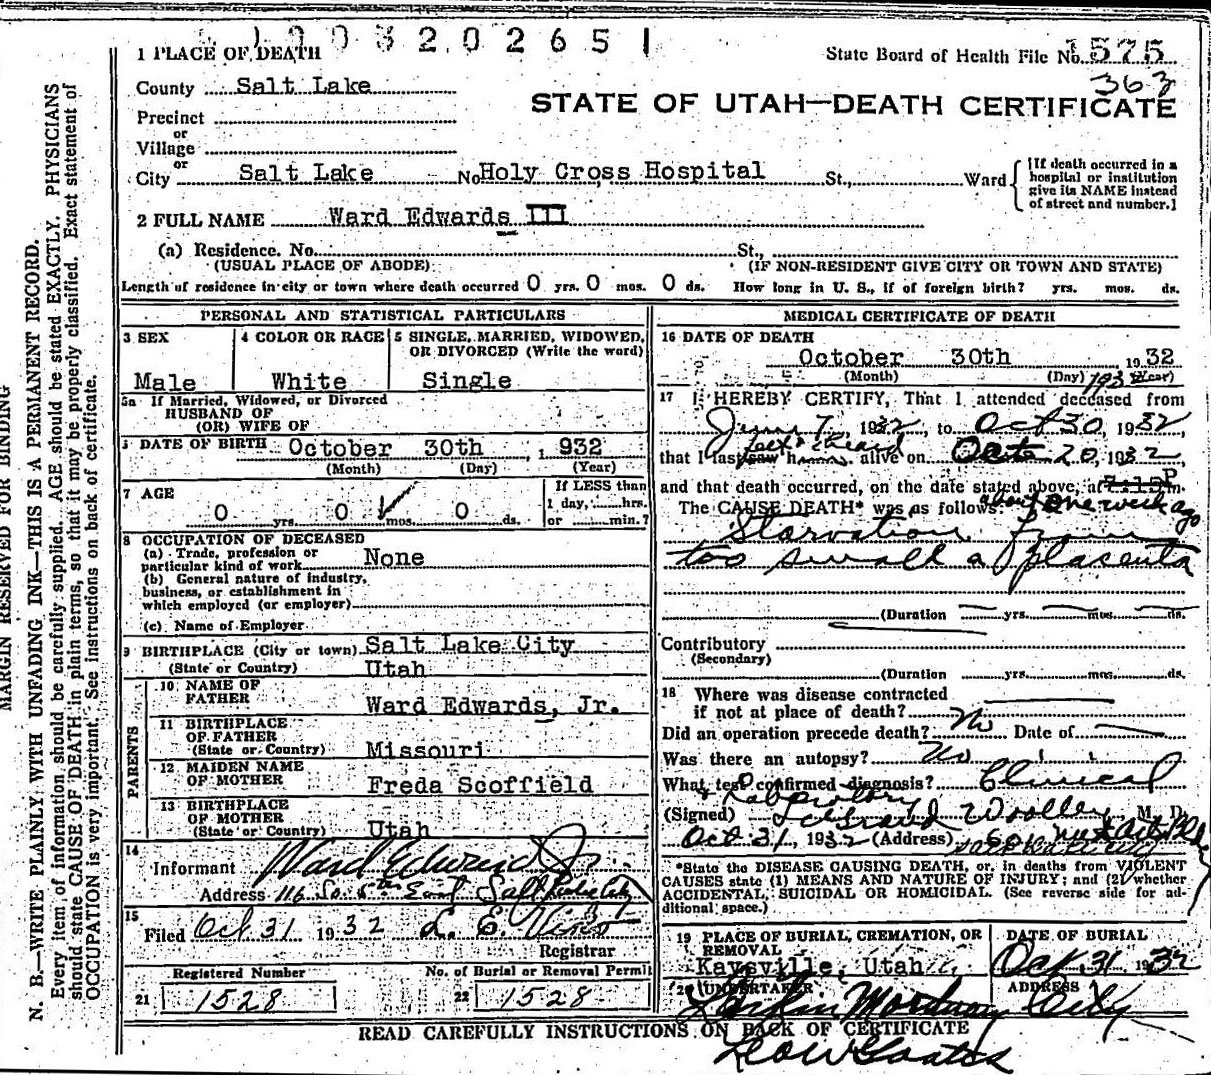 1003202651
1 PLACE OF DEATH
State Board of Health File No. 1575
363
County Salt Lake
STATE OF UTAH—DEATH CERTIFICATE
Precinct
or
Village
or
City Salt Lake No. Holy Cross Hospital St., Ward
[If death occurred in a hospital or institution give its NAME instead of street and number.]
2 FULL NAME Ward Edwards III
(a) Residence. No. St.,
(USUAL PLACE OF ABODE) (IF NON-RESIDENT GIVE CITY OR TOWN AND STATE)
Length of residence in city or town where death occurred 0 yrs. 0 mos. 0 ds. How long in U. S., if of foreign birth? yrs. mos. ds.
PERSONAL AND STATISTICAL PARTICULARS
3 SEX
Male
4 COLOR OR RACE
White
5 SINGLE, MARRIED, WIDOWED, OR DIVORCED (Write the word)
Single
5a If Married, Widowed, or Divorced
HUSBAND OF
(OR) WIFE OF
DATE OF BIRTH October 30th, 1932
(Month) (Day) (Year)
7 AGE
0 yrs. 0 mos. 0 ds.
If LESS than
1 day, hrs.
or min.?
8 OCCUPATION OF DECEASED
(a) Trade, profession or particular kind of work None
(b) General nature of industry, business, or establishment in which employed (or employer)
(c) Name of Employer
9 BIRTHPLACE (City or town) Salt Lake City
(State or Country) Utah
PARENTS
10 NAME OF FATHER Ward Edwards, Jr.
11 BIRTHPLACE OF FATHER (State or Country) Missouri
12 MAIDEN NAME OF MOTHER Freda Scoffield
13 BIRTHPLACE OF MOTHER (State or Country) Utah
14
Informant Ward Edwards Jr.
Address 116 So. 5th East Salt Lake City
15
Filed Oct 31 1932 L. E.
Registrar
Registered Number
21 1528
No. of Burial or Removal Permit
22 1528
MEDICAL CERTIFICATE OF DEATH
16 DATE OF DEATH
October 30th 1932
(Month) (Day) 1932 (Year)
17 I HEREBY CERTIFY, That I attended deceased from
7, 1932, to Oct 30, 1932,
that I last saw heard alive on Oct 20, 1932,
and that death occurred, on the date stated above, at 7:15P m.
The CAUSE DEATH* was as follows: about one week ago
Starvation from
too small a placenta
(Duration yrs. mos. ds.
Contributory
(Secondary)
(Duration yrs. mos. ds.
18 Where was disease contracted
if not at place of death?
Did an operation precede death? No Date of
Was there an autopsy? No
What test confirmed diagnosis? Clinical
& Laboratory
(Signed) Woolley M. D.
Oct 31, 1932 (Address)
*State the DISEASE CAUSING DEATH, or, in deaths from VIOLENT
CAUSES state (1) MEANS AND NATURE OF INJURY; and (2) whether
ACCIDENTAL, SUICIDAL OR HOMICIDAL. (See reverse side for ad-
ditional space.)
19 PLACE OF BURIAL, CREMATION, OR REMOVAL
Kaysville, Utah
DATE OF BURIAL
Oct 31 1932
20 UNDERTAKER
Larkin Mortuary
ADDRESS
City
READ CAREFULLY INSTRUCTIONS ON BACK OF CERTIFICATE
MARGIN RESERVED FOR BINDING
N. B.—WRITE PLAINLY WITH UNFADING INK—THIS IS A PERMANENT RECORD.
Every item of information should be carefully supplied. AGE should be stated EXACTLY. PHYSICIANS
should state CAUSE OF DEATH in plain terms, so that it may be properly classified. Exact statement of
OCCUPATION is very important. See instructions on back of certificate.